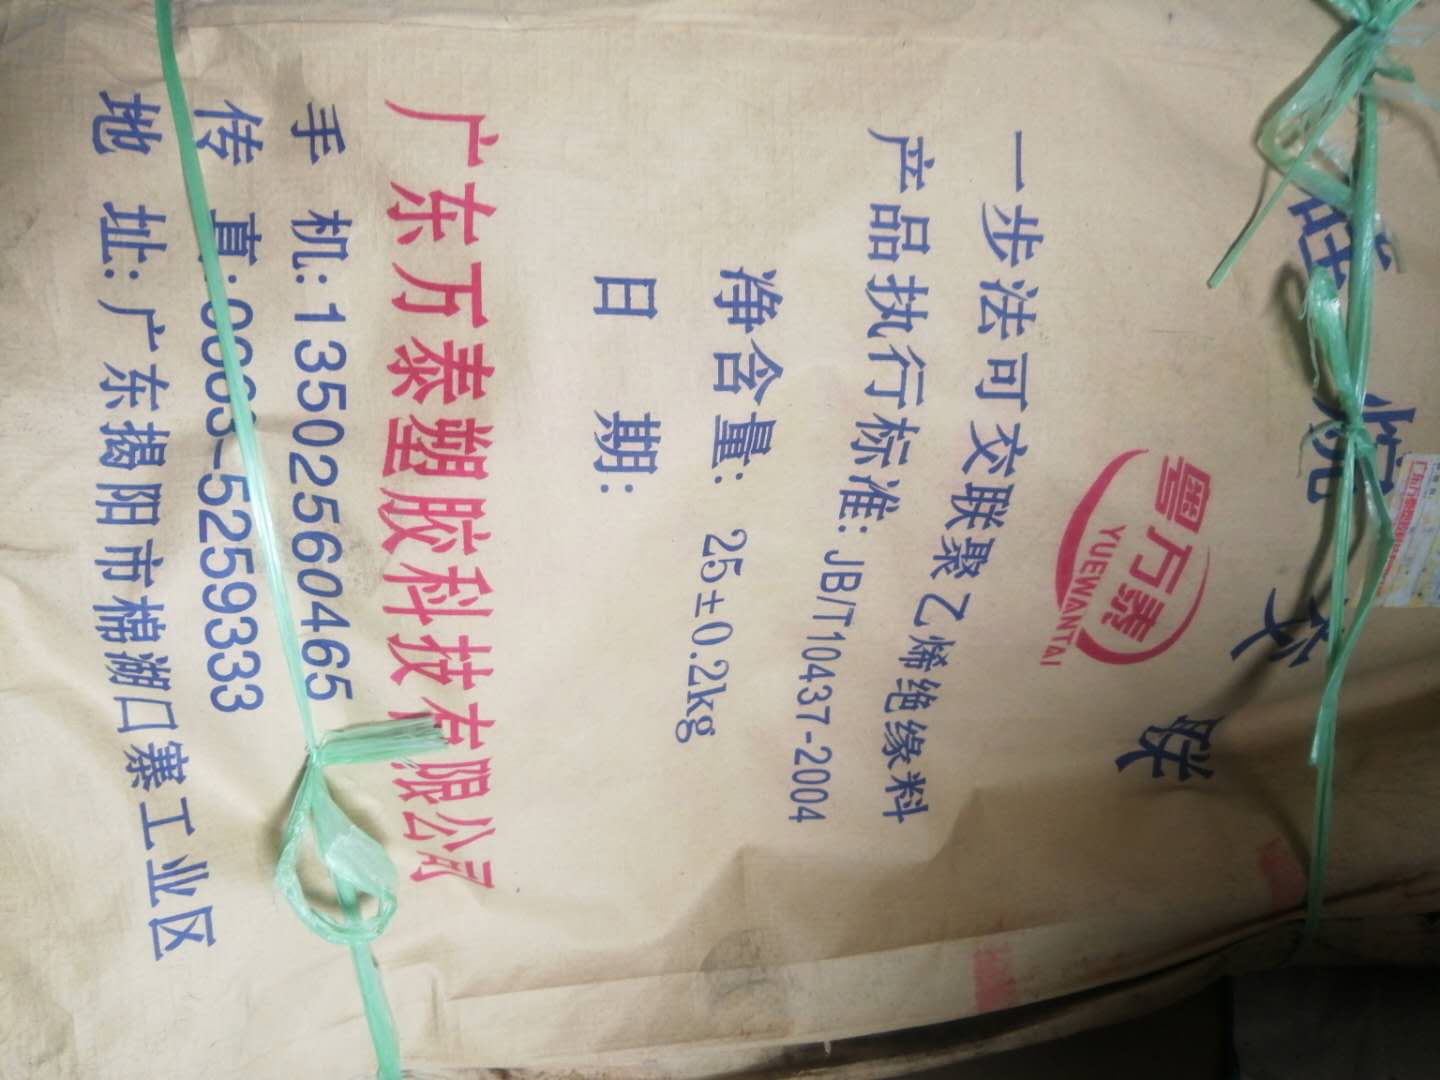 硅烷交联
粤万泰
YUEWANTAI
一步法可交联聚乙烯绝缘料
产品执行标准: JB/T10437-2004
净含量: 25±0.2kg
日 期:
广东万泰塑胶科技有限公司
手 机: 13502560465
传 真: 0663-5259333
地 址: 广东揭阳市棉湖口寨工业区